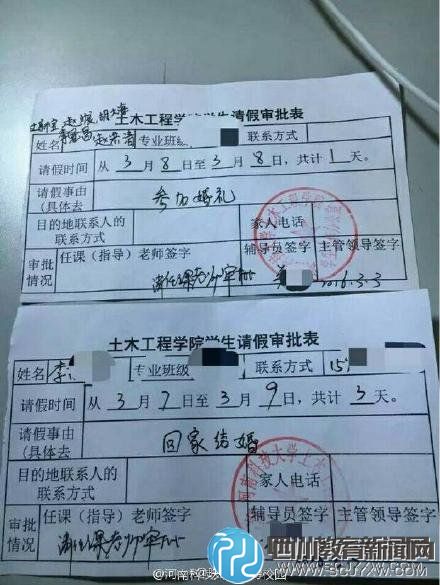 土木工程学院学生请假审批表
姓名 专业班级 联系方式
请假时间 从 3 月 8 日至 3 月 8 日，共计 1 天。
请假事由 参加婚礼
（具体去
目的地联系人的联系方式 家人电话
审批情况 任课（指导）老师签字 辅导员签字 主管领导签字
请任课老师审批 2016.3.3
土木工程学院学生请假审批表
姓名 李 专业班级 联系方式 15
请假时间 从 3 月 7 日至 3 月 9 日，共计 3 天。
请假事由 回家结婚
（具体去
目的地联系人的联系方式 家人电话
审批情况 任课（指导）老师签字 辅导员签字 主管领导签字
请任课老师审批
四川教育新闻网